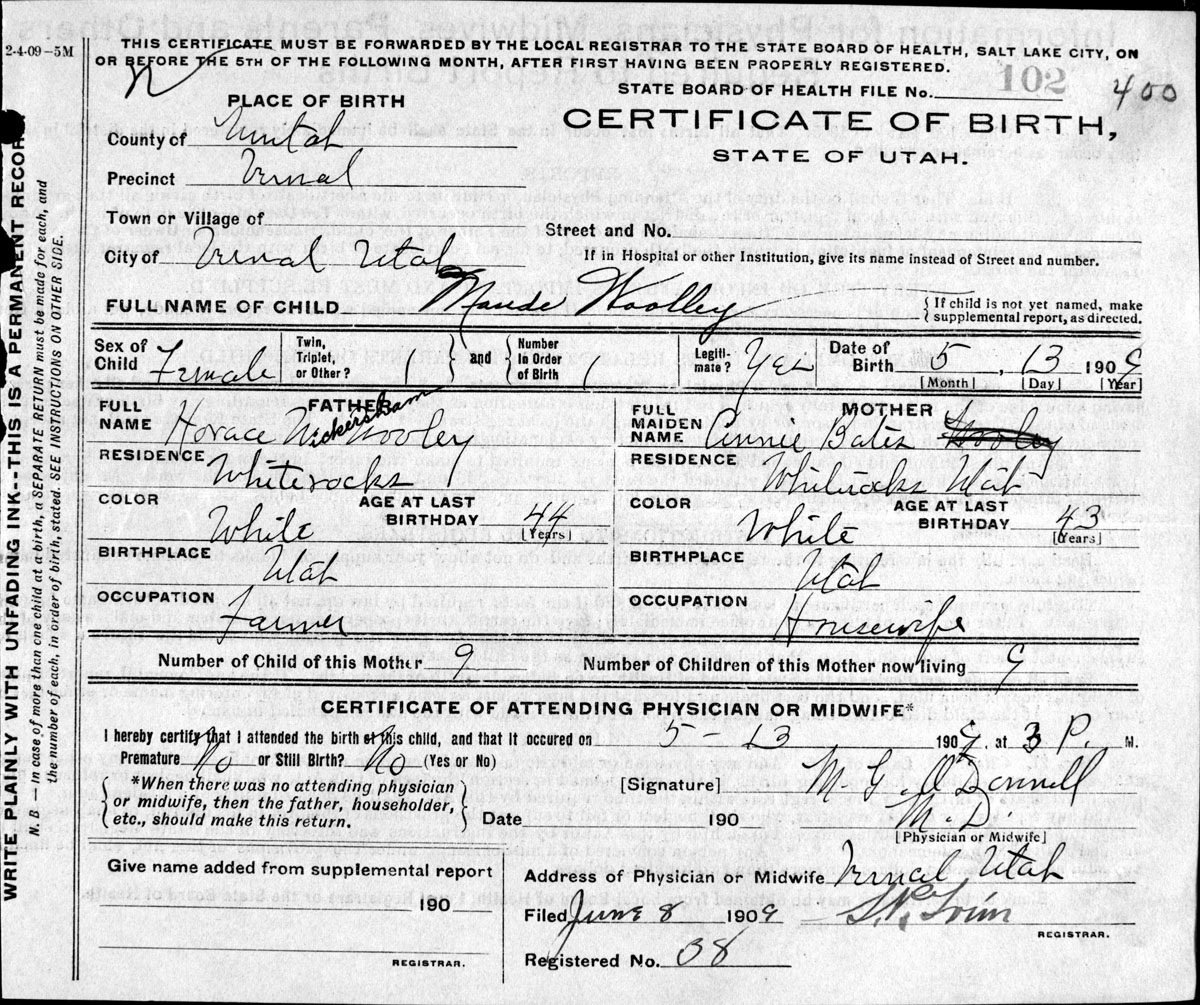 2-4-09-5M
THIS CERTIFICATE MUST BE FORWARDED BY THE LOCAL REGISTRAR TO THE STATE BOARD OF HEALTH, SALT LAKE CITY, ON
OR BEFORE THE 5TH OF THE FOLLOWING MONTH, AFTER FIRST HAVING BEEN PROPERLY REGISTERED.
STATE BOARD OF HEALTH FILE No. 102 400
PLACE OF BIRTH
CERTIFICATE OF BIRTH,
STATE OF UTAH.
County of Uintah
Precinct Vernal
Town or Village of
Street and No.
City of Vernal Utah
If in Hospital or other Institution, give its name instead of Street and number.
FULL NAME OF CHILD Maude Woolley
{ If child is not yet named, make
supplemental report, as directed.
Sex of Child Female
Twin, Triplet, or Other?
and
Number in Order of Birth
Legitimate? Yes
Date of Birth 5, 13 1909
[Month] [Day] [Year]
FATHER
FULL NAME Horace Wickersham Wooley
RESIDENCE Whiterocks
COLOR White
AGE AT LAST BIRTHDAY 44
[Years]
BIRTHPLACE Utah
OCCUPATION Farmer
MOTHER
FULL MAIDEN NAME Annie Bates Wooley
RESIDENCE Whiterocks Utah
COLOR White
AGE AT LAST BIRTHDAY 43
[Years]
BIRTHPLACE Utah
OCCUPATION Housewife
Number of Child of this Mother 9
Number of Children of this Mother now living 9
CERTIFICATE OF ATTENDING PHYSICIAN OR MIDWIFE*
I hereby certify that I attended the birth of this child, and that it occured on 5-13 1909, at 3 P. M.
Premature No or Still Birth? No (Yes or No)
*When there was no attending physician
or midwife, then the father, householder,
etc., should make this return.
[Signature] M. G. O'Donnell
M.D.
[Physician or Midwife]
Date 190
Give name added from supplemental report
190
REGISTRAR.
Address of Physician or Midwife Vernal Utah
Filed June 8 1909
REGISTRAR.
Registered No. 38
WRITE PLAINLY WITH UNFADING INK--THIS IS A PERMANENT RECORD.
N. B. - In case of more than one child at birth, a SEPARATE RETURN must be made for each, and
the number of each, in order of birth, stated. SEE INSTRUCTIONS ON OTHER SIDE.